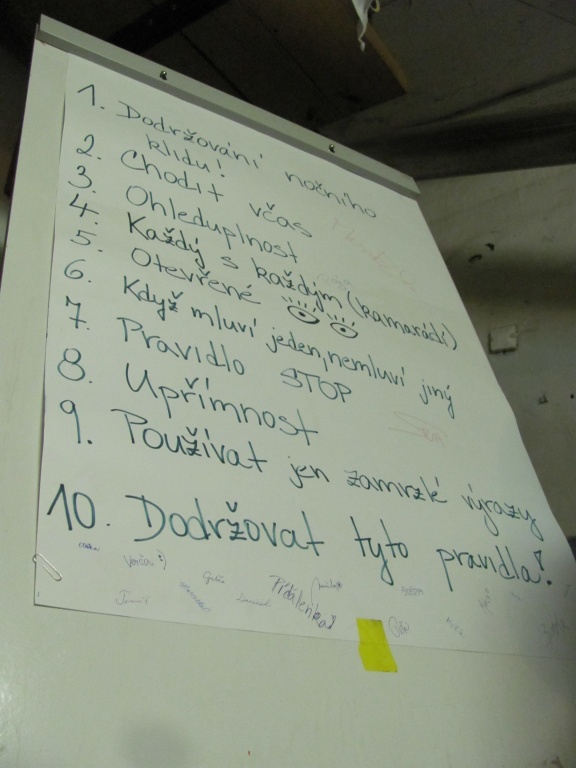 1. Dodržování nočního
klidu!
2. Chodit včas
3. Ohleduplnost
4. Každý s každým (kamarádi)
5. Otevřené
6. Když mluví jeden, nemluví jiný
7. Pravidlo STOP
8. Upřímnost
9. Používat jen zamrzlé výrazy
10. Dodržovat tyto pravidla!
Verča :)